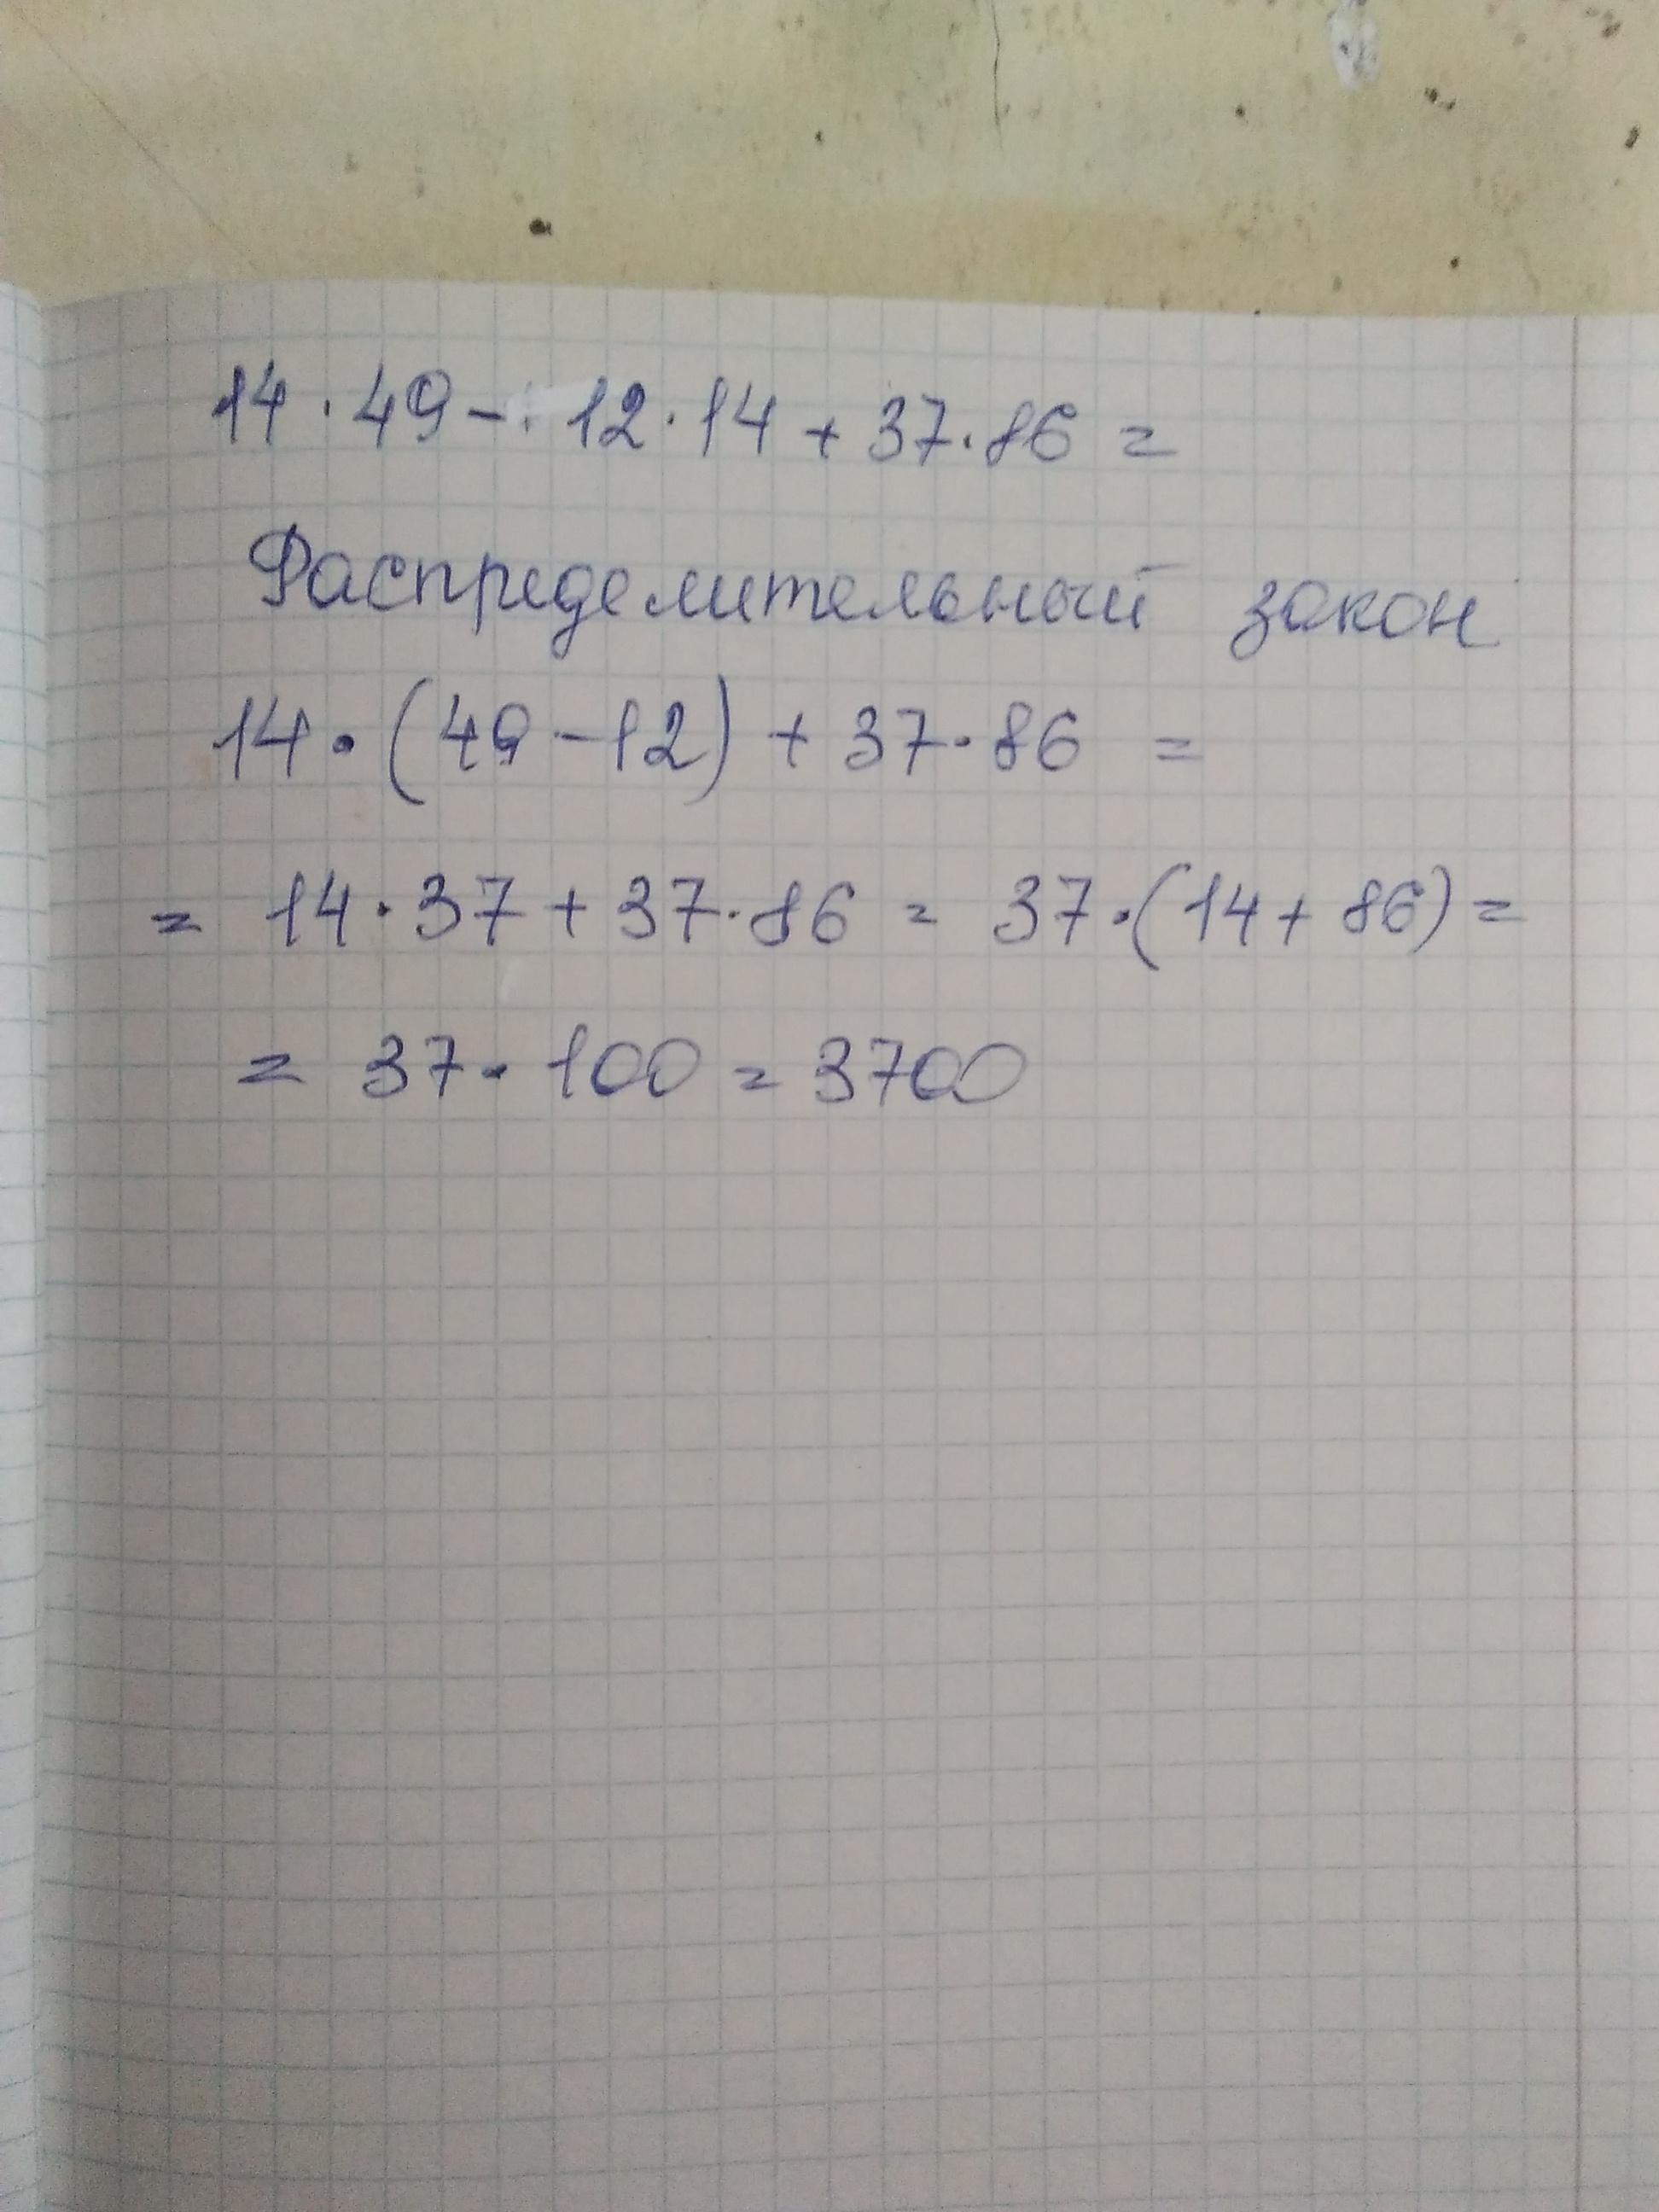 14 · 49 - 12 · 14 + 37 · 86 =
Распределительный закон
14 · (49 - 12) + 37 · 86 =
= 14 · 37 + 37 · 86 = 37 · (14 + 86) =
= 37 · 100 = 3700